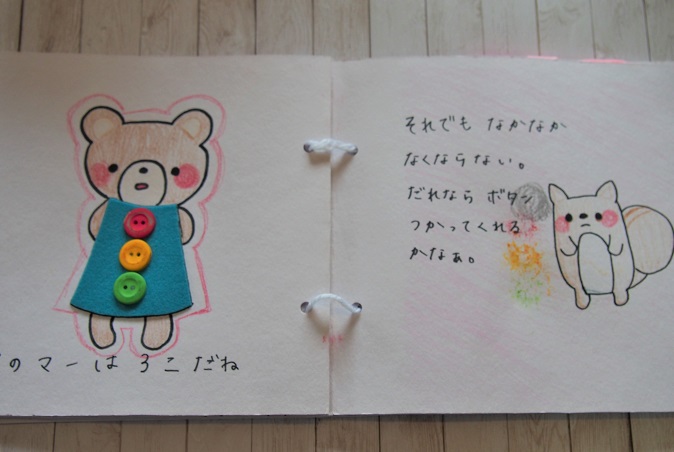 のマーは 3こだね
それでも なかなか
なくならない。
だれなら ボタン
つかってくれる
かなぁ。